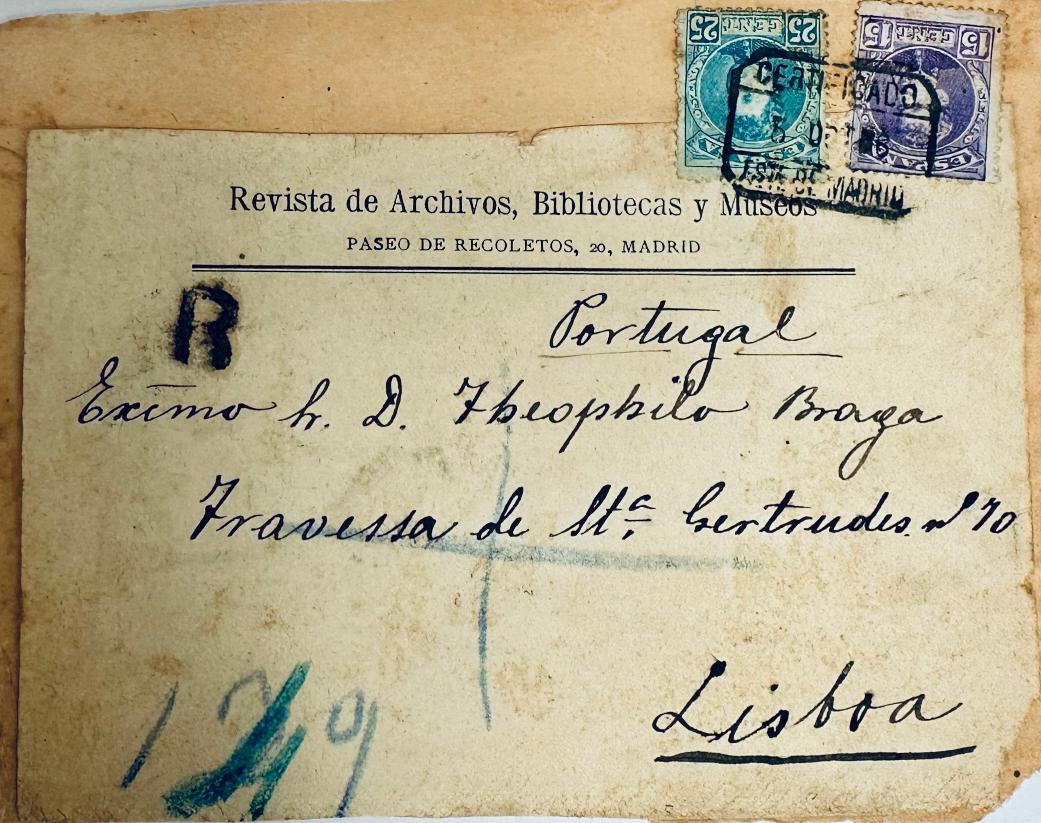 25 CENT 25
15 CENT 15
CERTIFICADO
5 OCT
ESTE DE MADRID
Revista de Archivos, Bibliotecas y Museos
PASEO DE RECOLETOS, 20, MADRID
R
Portugal
Exc̄mo Sr. D. Theophilo Braga
Travessa de Stª Gertrudes nº 70
Lisboa